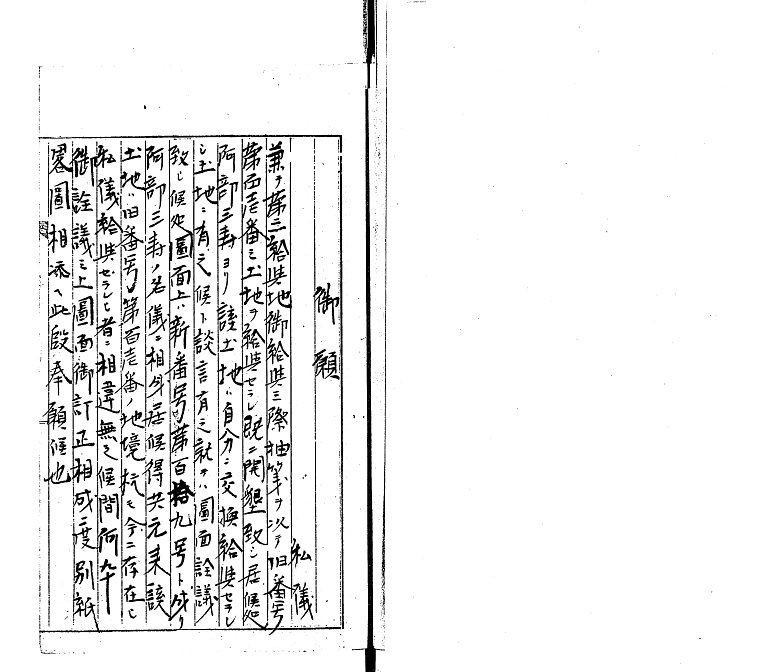 御願
私儀
兼テ第三給与地御給与之際抽籤ヲ以テ旧番号
第百壱番之土地ヲ給与セラレ既ニ開墾致シ居候処
阿部三寿ヨリ該土地ハ自分ニ交換給与セラレ
シ土地ニ有之候ト談言有之就テハ圖面詮議
致シ候処圖面上ハ新番号第百拾九号ト成リ
阿部三寿ノ名儀ニ相成居候得共元来該
土地ハ旧番号第百壱番ノ地境杭モ今ニ存在シ
私儀給与セラレシ者ニ相違無之候間何卒
御詮議之上圖面御訂正相成度別紙
畧圖相添ヘ此段奉願候也